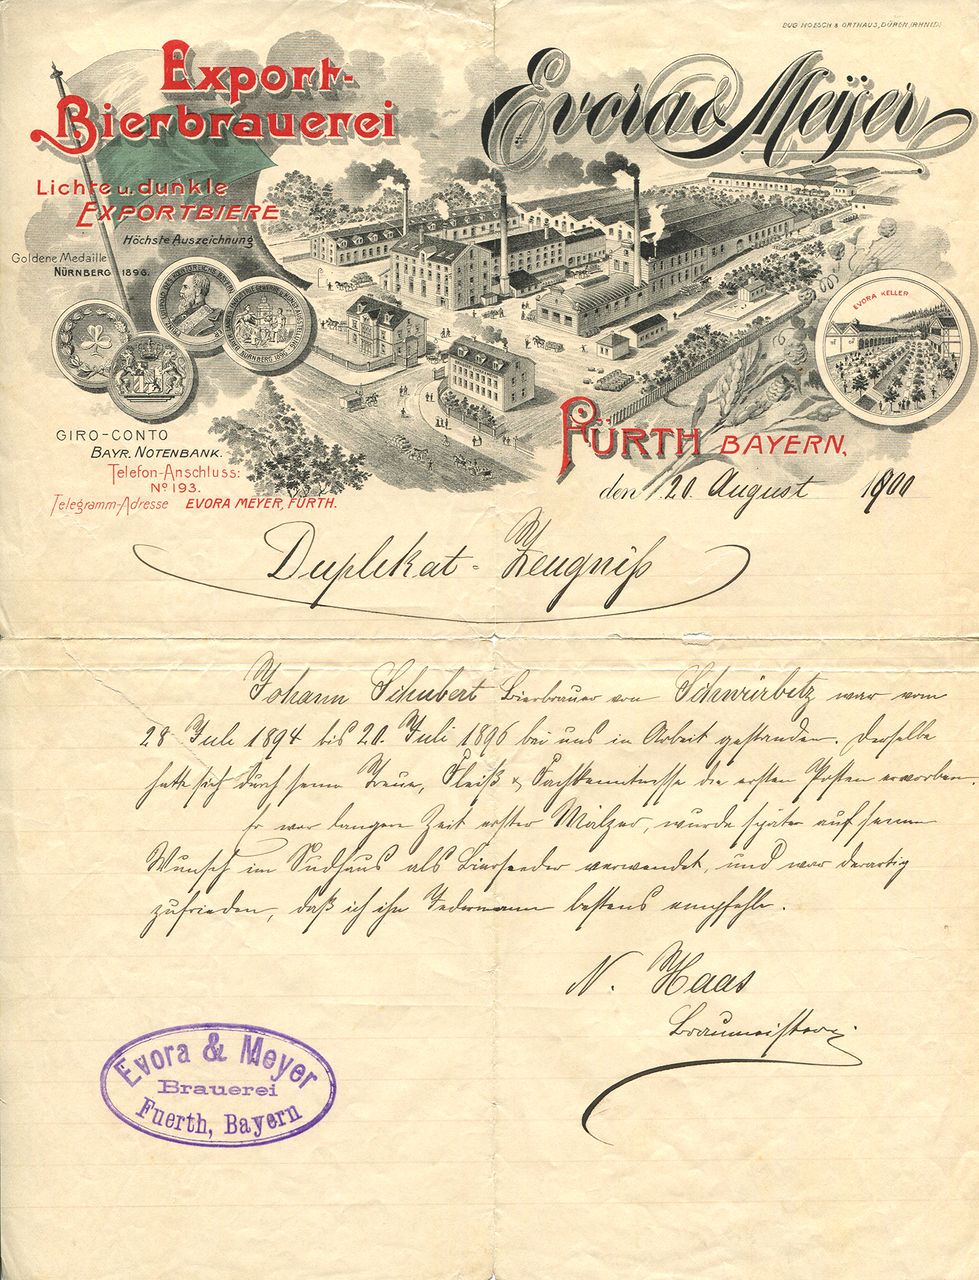 EUG HOESCH & ORTHAUS, DÜREN, (RHNLD)
Export-
Bierbrauerei
Evora & Meyer
Lichte u. dunkle
EXPORTBIERE
Höchste Auszeichnung
Goldene Medaille
NÜRNBERG 1896.
NÜRNBERG 1896
EVORA KELLER
GIRO-CONTO
BAYR. NOTENBANK.
Telefon-Anschluss:
No 193.
Telegramm-Adresse EVORA MEYER, FÜRTH.
FÜRTH BAYERN,
den 20. August 1900
Duplikat-Zeugniß
Johann Schubert Bierbrauer von war vom
28 Juli 1894 bis 20 Juli 1896 bei uns in Arbeit gestanden. Derselbe
hatte sich durch seine Treue, Fleiß & Fachkenntnisse die ersten Posten erworben.
Er war langere Zeit erster Mälzer, wurde später auf seinen
Wunsch im Sudhaus als Biersieder verwendet, und war derartig
zufrieden, daß ich ihn Jedermann bestens empfehle.
N. Haas
Braumeister.
Evora & Meyer
Brauerei
Fuerth, Bayern